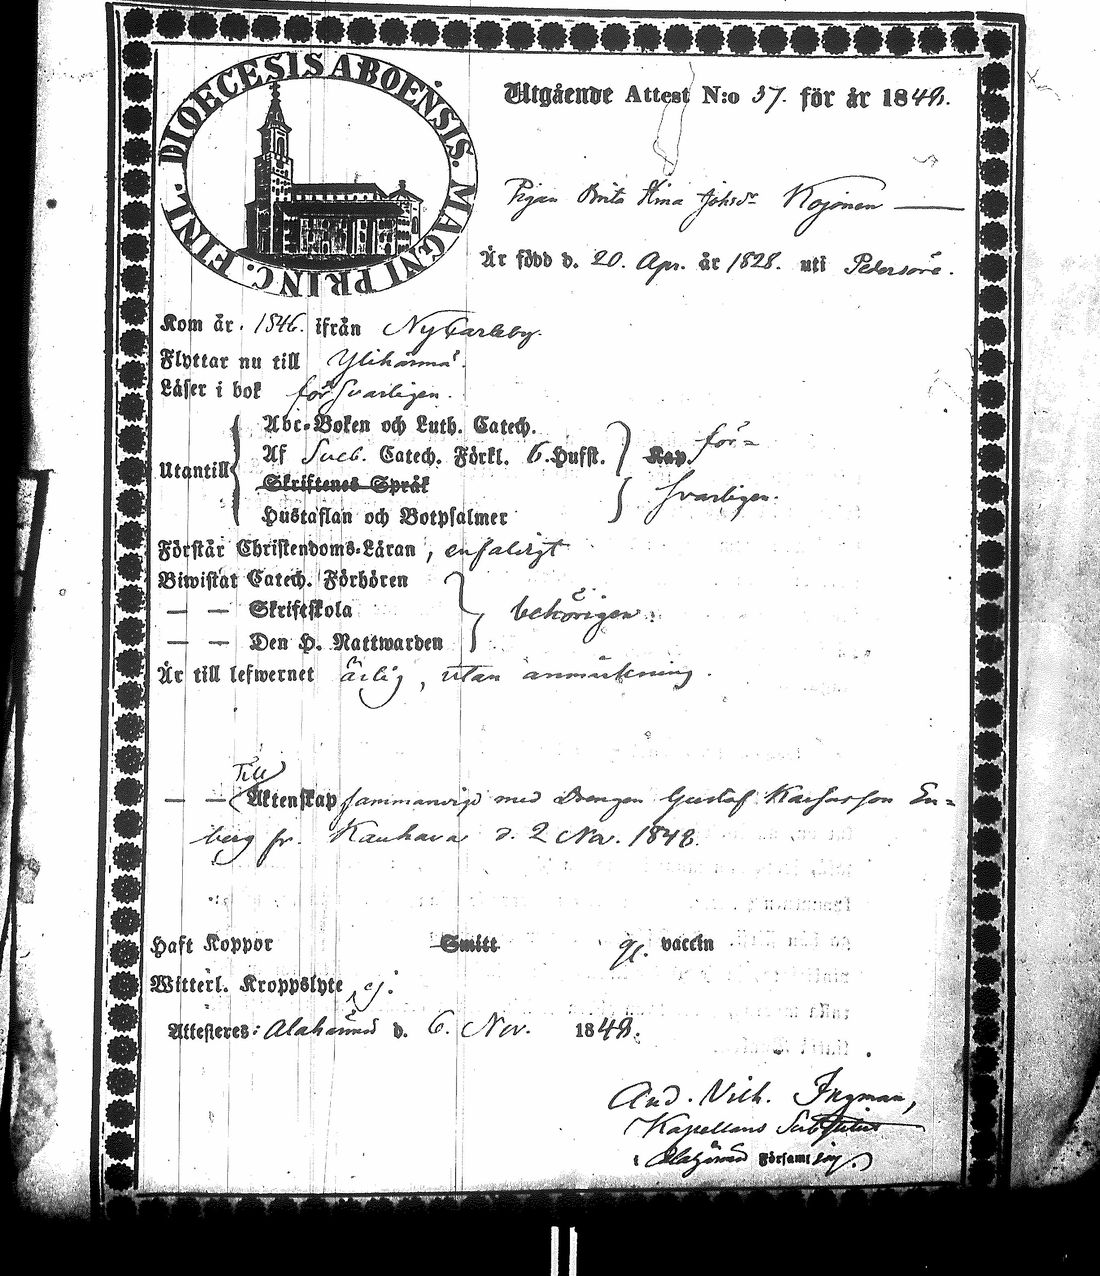 DIOECESIS ABOENSIS. MAGNI PRINC. FINL.
Utgående Attest N:o 37. för år 1848.
Pigan Brita Stina Johsdr Kojonen
Är född d. 20. Apr. år 1828. uti Pedersöre.
Kom år. 1846. ifrån NyCarleby.
Flyttar nu till Ylihärmä.
Läser i bok försvarligen.
Utantill
Abc-Boken och Luth. Catech.
Af Sveb. Catech. Förkl. 6. Hufst. Kap. för=
Skriftenes Språk
svarligen.
Hustaflan och Botpsalmer
Förstår Christendoms-Läran, enfaldigt
Biwistat Catech. Förhören
— — Skriftskola
behörigen.
— — Den H. Nattwarden
Är till lefwernet ärlig, utan anmärkning.
Till
— — Äktenskap sammanvigd med Drengen Gustaf Karlsson En=
berg fr. Kauhava d. 2 Nov. 1848.
Haft Koppor Smitt vaccin
Witterl. Kroppslyte, ej.
Attesteres: Alahärmä d. 6. Nov. 1848.
And. Vilh. Ingman,
Kapellans Substitut
i Alahärmä Församl.